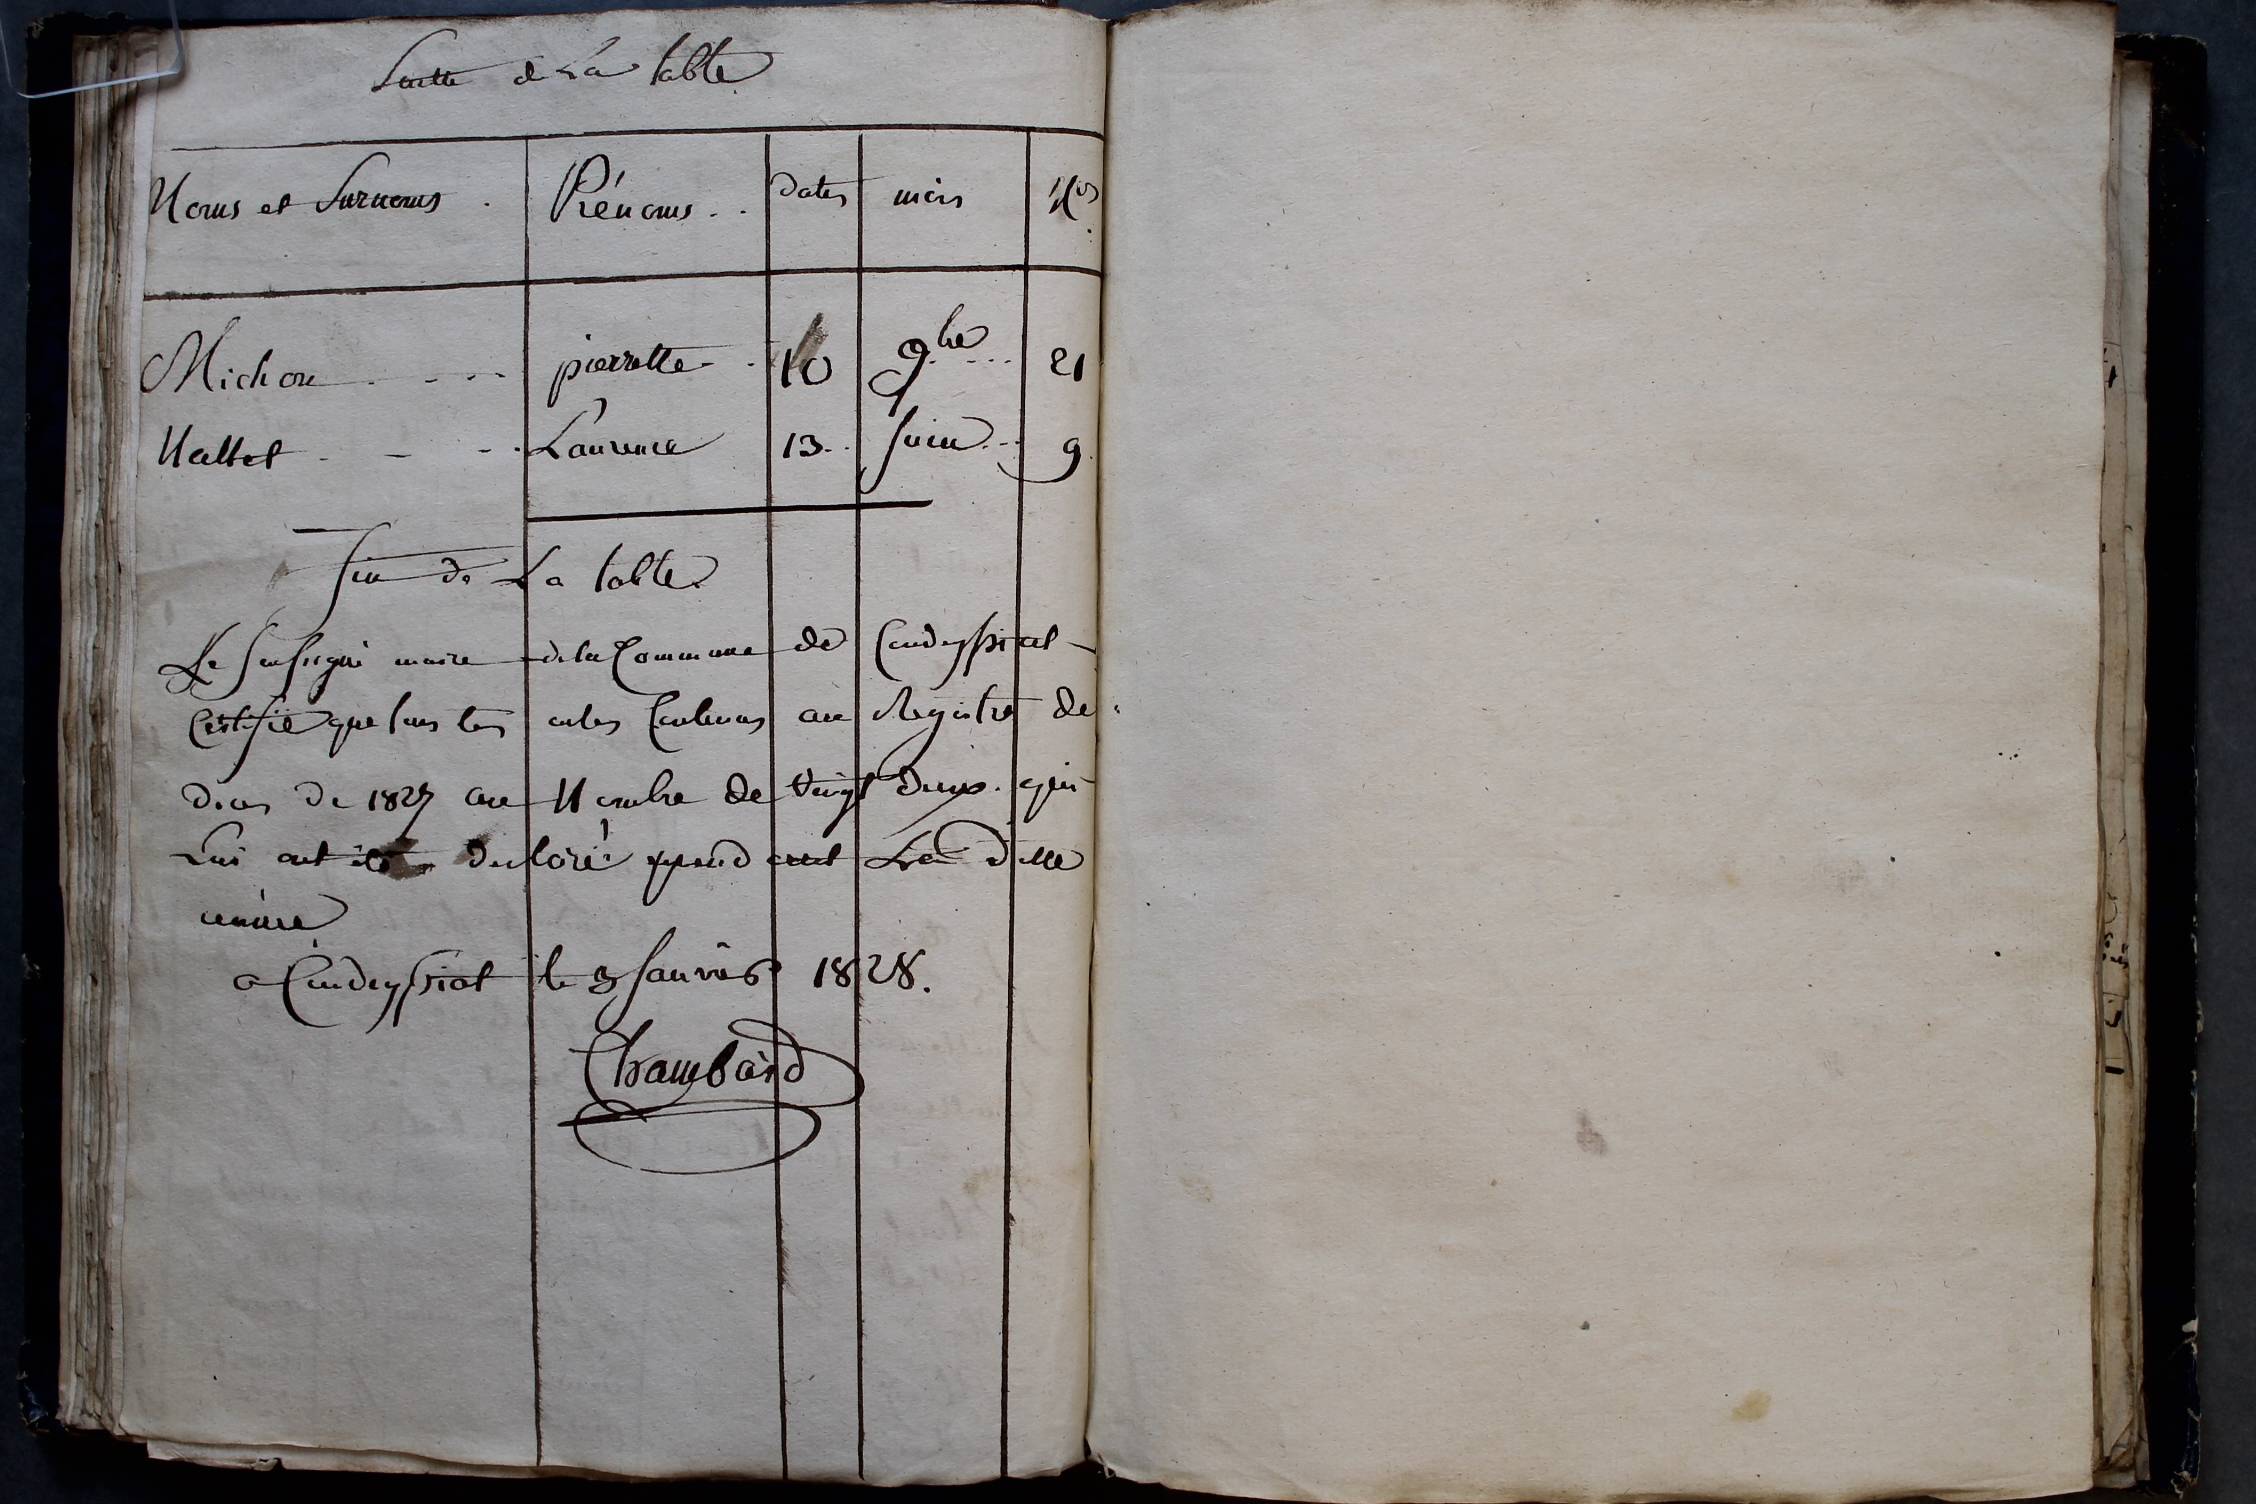 Suitte de La table
Noms et Surnoms . Prénoms . . dates mois Nos
Michon - - - - pierrette - . 10 9bre - - - 21
Nallet - - - - Laurence 13 - . Juin - - 9
fin de La table
Le Sousigné maire de la Commune de Condeyssiat
Certifie que tous les actes Contenus au Registre de
deces de 1827 au Nombre de Vingt deux . qui
Lui ont été declaré pendant La d
année
a Condeyssiat le 3 Janvier 1828.
Chambard